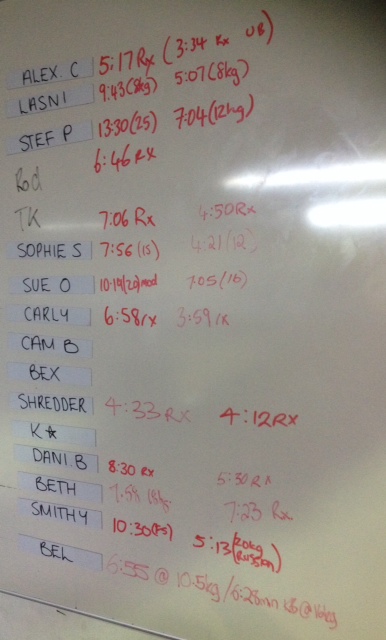 ALEX. C 5:17 Rx (3:34 Rx UB)
LASNI 9:43(8kg) 5:07(8kg)
STEF P 13:30(25) 7:04(12kg)
Rod 6:46 RX
TK 7:06 Rx 4:50 Rx
SOPHIE S 7:56 (15) 4:21(12)
SUE O 10:19(20)mod 7:05 (16)
CARLY 6:58 rx 3:59 rx
CAM B
BEX
SHREDDER 4:33 RX 4:12 RX
K☆
DANI.B 8:30 RX 5:30 RX
BETH 7:23 Rx
SMITHY 10:30 5:13 (20kg Russian)
BEL 6:55 @ 10.5kg / 6:28min KB @ 16kg